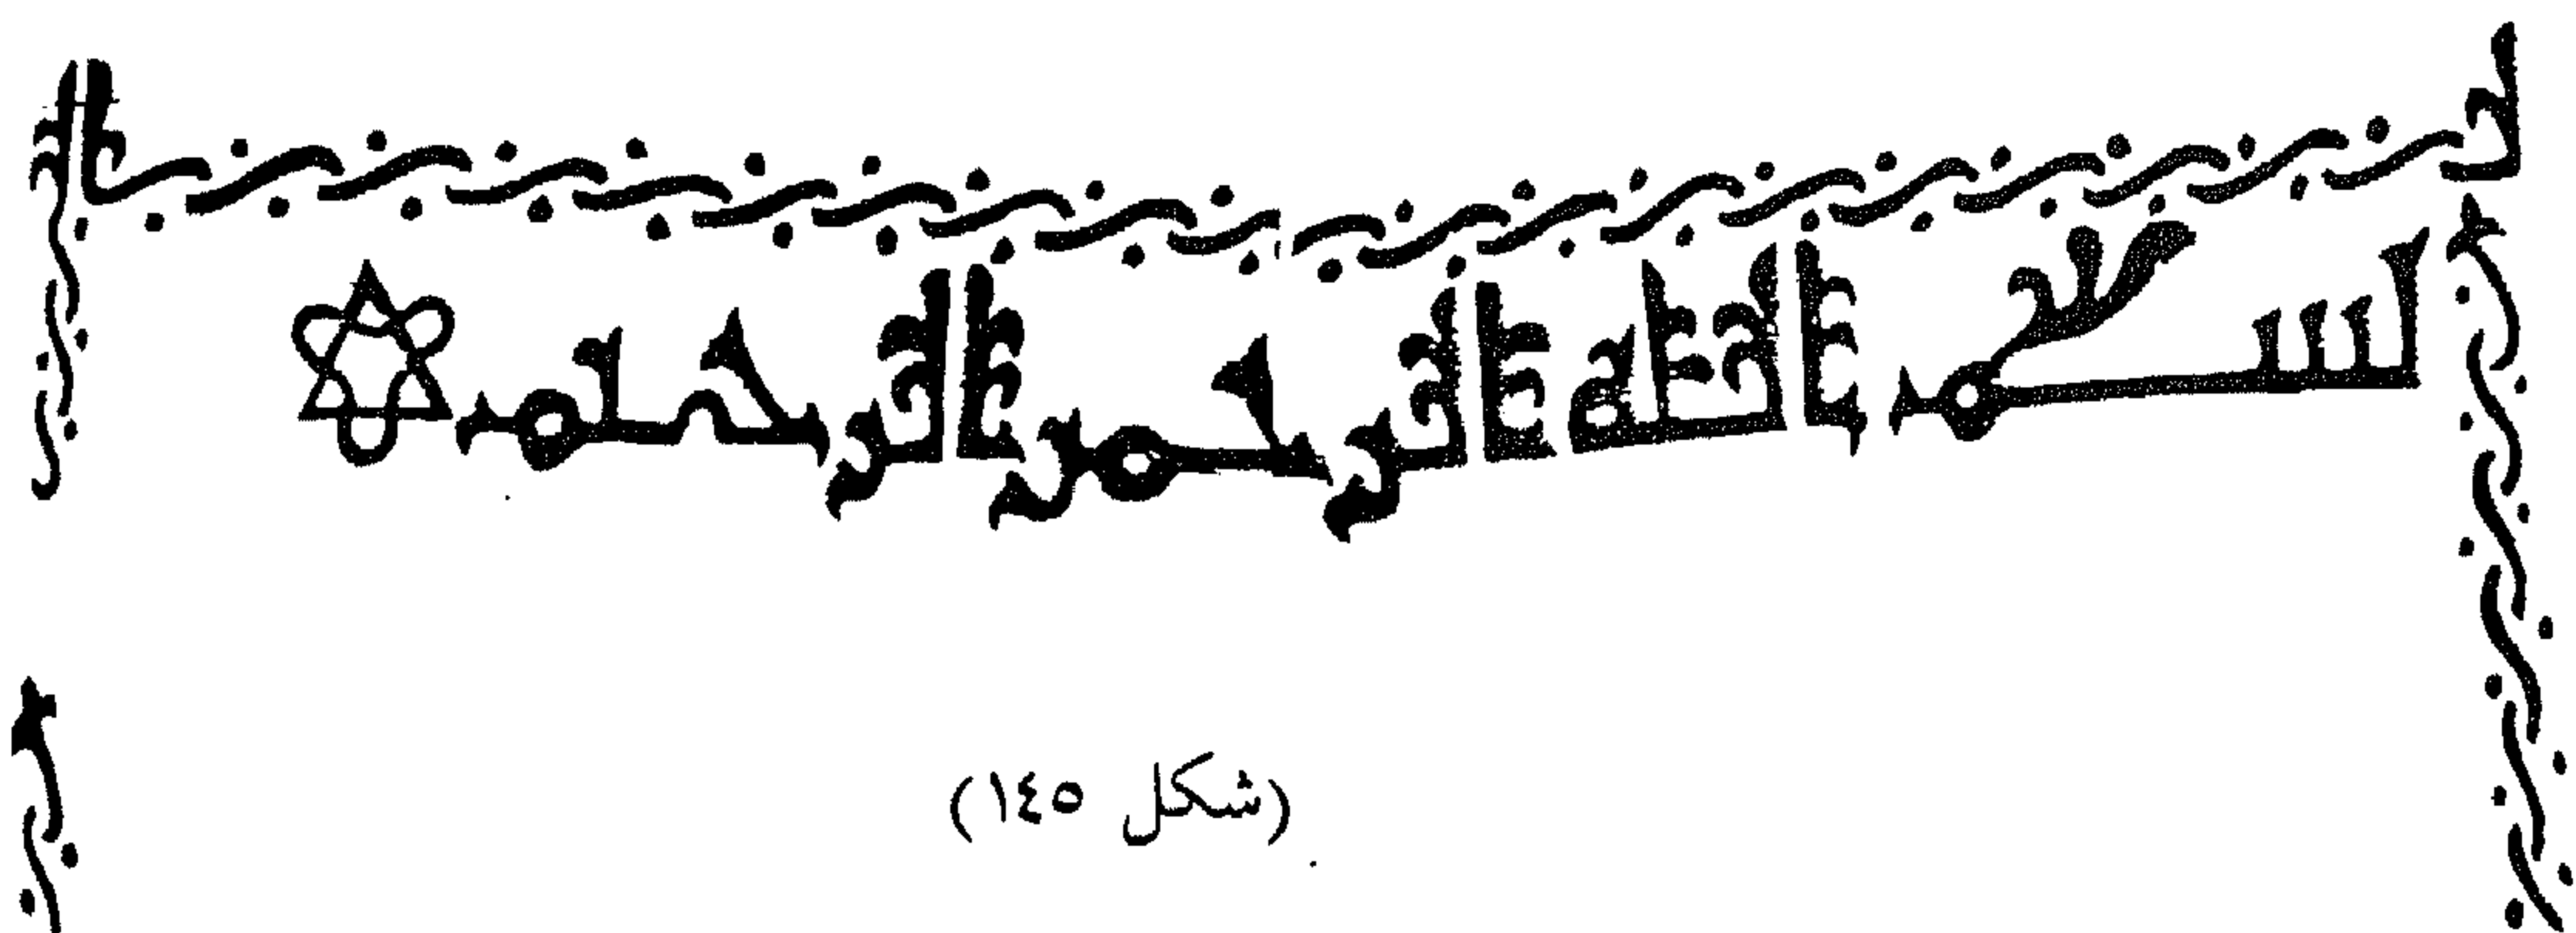 بسم الله الرحمن الرحيم
(شكل ١٤٥)